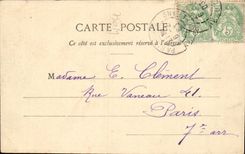 CARTE POSTALE
Ce côté est exclusivement réservé à l'adresse
Madame E. Clément
Rue Vaneau 41.
Paris
7e arr